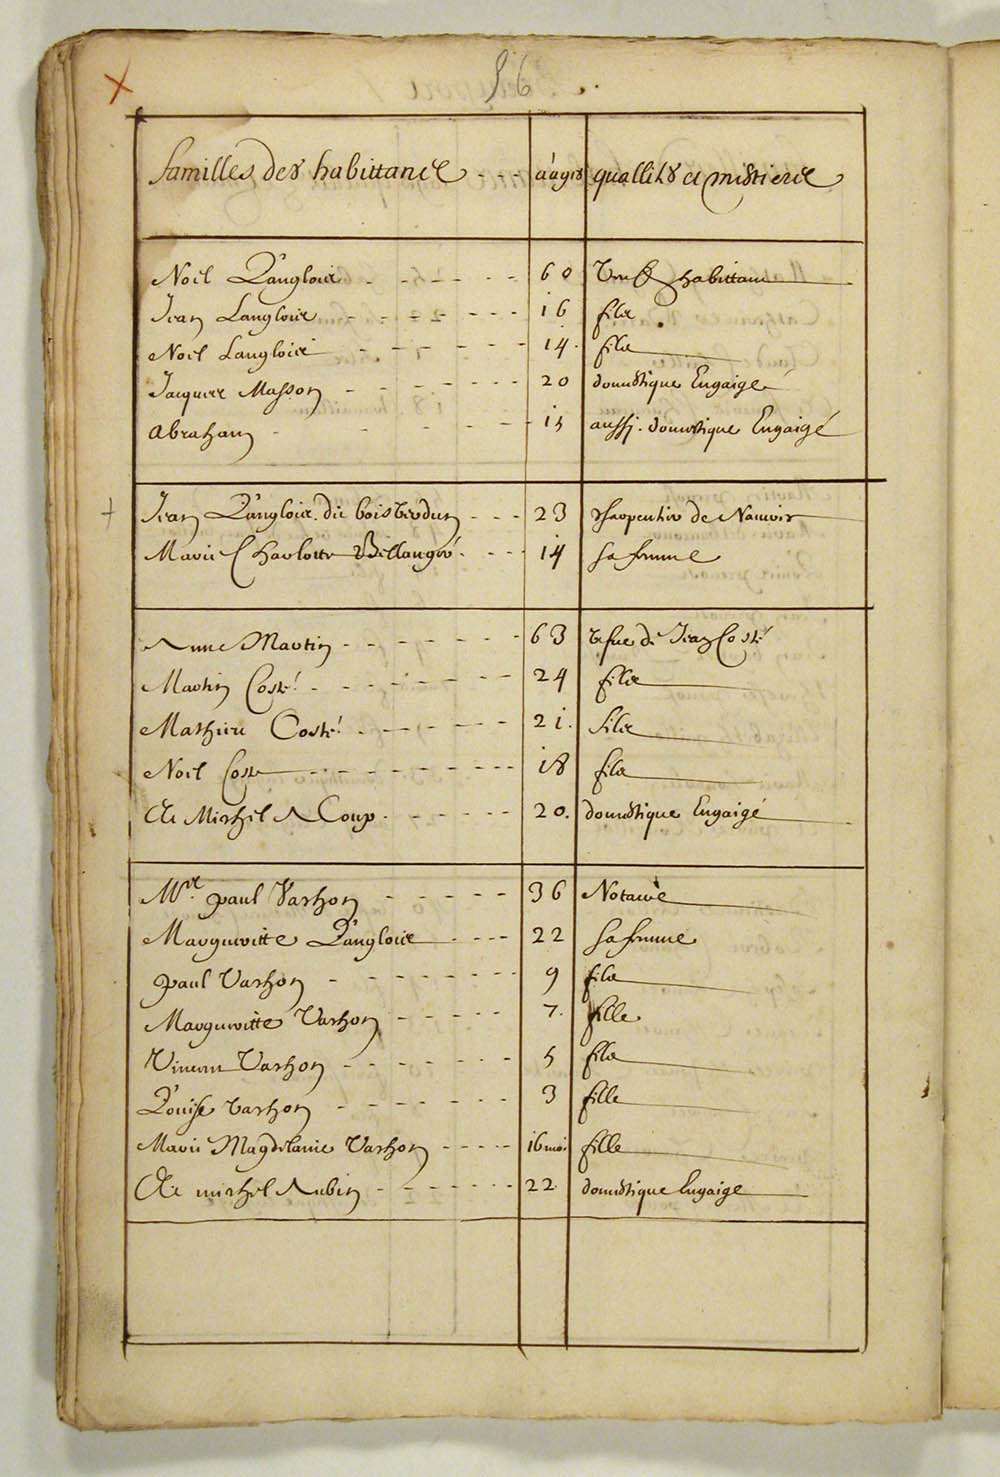 56
familles des habittants - - - aages quallités et mestiers
Noel L'anglois - - - - - 60 veuf, habittant
Jean Langlois - - - - - - 16 fils
Noel Langlois - - - - - - 14. fils
Jacques Masson - - - - - - 20 domestique Engaigé
Abraham - - - - - - 15 aussy. domestique Engaigé
Jean L'anglois. du boisverdun - - - 23 charpentier de Navires
Marie Charlotte Bellangé. - - - 14 sa femme
Anne Martin - - - - - - - 63 vefue de Jean Costé
Martin Costé - - - - - - 24 fils
Mathieu Costé - - - - - - 21. fils
Noel Costé - - - - - - - - 18 fils
Et Michel Coup - - - - - - 20. domestique Engaigé
Mre. paul Vachon - - - - - 36 Notaire
Margueritte L'anglois - - - 22 sa femme
paul Vachon - - - - - - - 9 fils
Margueritte Vachon - - - - - 7. fille
Vincent Vachon - - - - - - 5 fils
Louise Vachon - - - - - - 3 fille
Marie Magdelaine Vachon - - - - 16 moi fille
Et michel Aubin - - - - - - - 22 domestique Engaigé